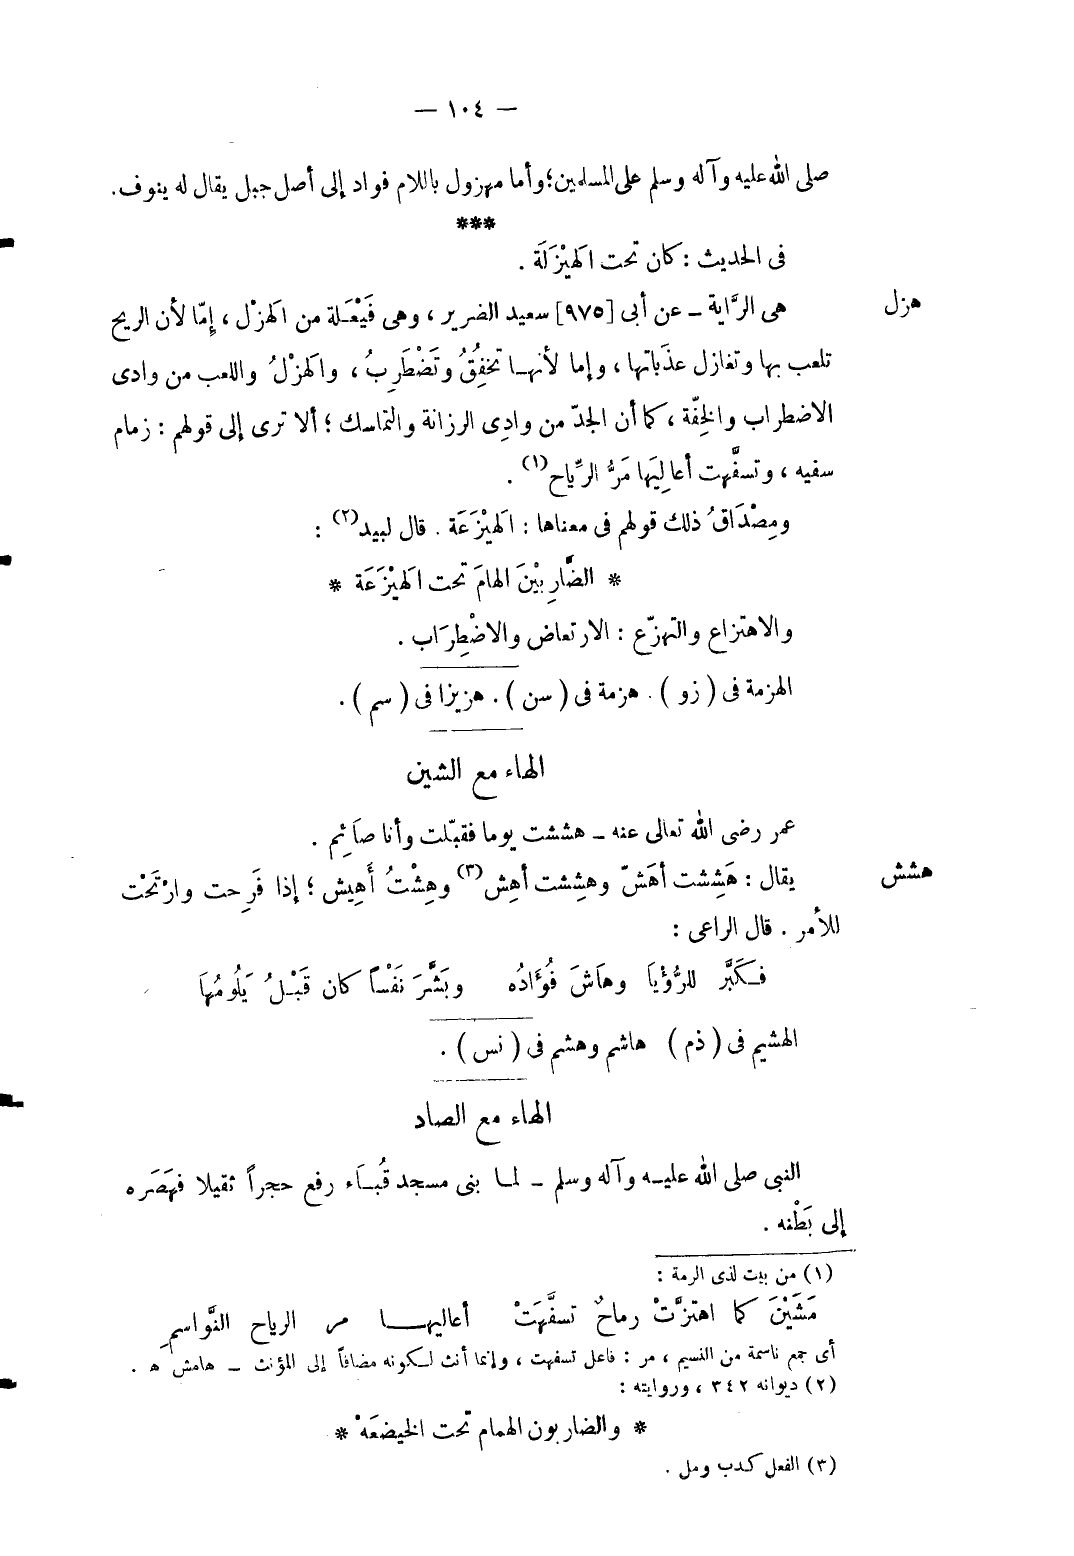 — ١٠٤ —
صلى الله عليه وآله وسلم على المسلمين؛ وأما مهزول باللام فواد إلى أصل جبل يقال له ينوف.
***
فى الحديث : كان تحت الهَيْزَلَة .
هزل هى الرَّاية – عن أبى [٩٧٥] سعيد الضرير ، وهى فَيْعَلة من الهزْل ، إِمّا لأن الريح
تلعب بها وتغازل عذَباتها ، وإما لأنها تخفِقُ وتَضْطَرِبُ ، والهزْلُ واللعب من وادى
الاضطراب والخِفّة ، كما أن الجدّ من وادِى الرزانة والتماسك ؛ ألا ترى إلى قولهم : زمام
سفيه ، وتسفَّهت أعالِيَها مَرُّ الرِّياح (١) .
ومِصْدَاقُ ذلك قولهم فى معناها : الهَيْزَعَة . قال لبيد (٢) :
* الضَّارِبيْنَ الهامَ تحت الهَيْزَعَة *
والاهتزاع والتهزّع : الارتعاض والاضْطِرَاب .
الهزمة فى ( زو ) . هزمة فى ( سن ) . هزيزا فى ( سم ) .
الهاء مع الشين
عمر رضى الله تعالى عنه – هششت يوما فقبّلت وأنا صائِم .
هشش يقال : هَشِشت أهَشّ وهشِشت أهِش (٣) وهِشْتُ أَهِيش ؛ إذا فَرِحت وارْتَحْت
للأمر . قال الراعى :
فكَبَّر للرُّؤْيا وهَاشَ فُؤَادُه وبَشَّرَ نَفْساً كان قَبْلُ يَلُومُهَا
الهشيم فى ( ذم ) هاشم وهشم فى ( نس ) .
الهاء مع الصاد
النبى صلى الله عليه وآله وسلم – لما بنى مسجد قُبَاء رفع حجراً ثقيلا فهَصَره
إلى بَطْنه .
(١) من بيت لذى الرمة :
مَشَيْنَ كما اهتزَّتْ رماحٌ تسفَّهَتْ أعاليها مر الرياح النَّواسمِ
أى جمع ناسمة من النسيم ، مر : فاعل تسفهت ، وإنما أنث لكونه مضافاً إلى المؤنث – هامش ه .
(٢) ديوانه ٣٤٢ ، وروايته :
* والضاربون الهمام تحت الخيضعَهْ *
(٣) الفعل كدب ومل .